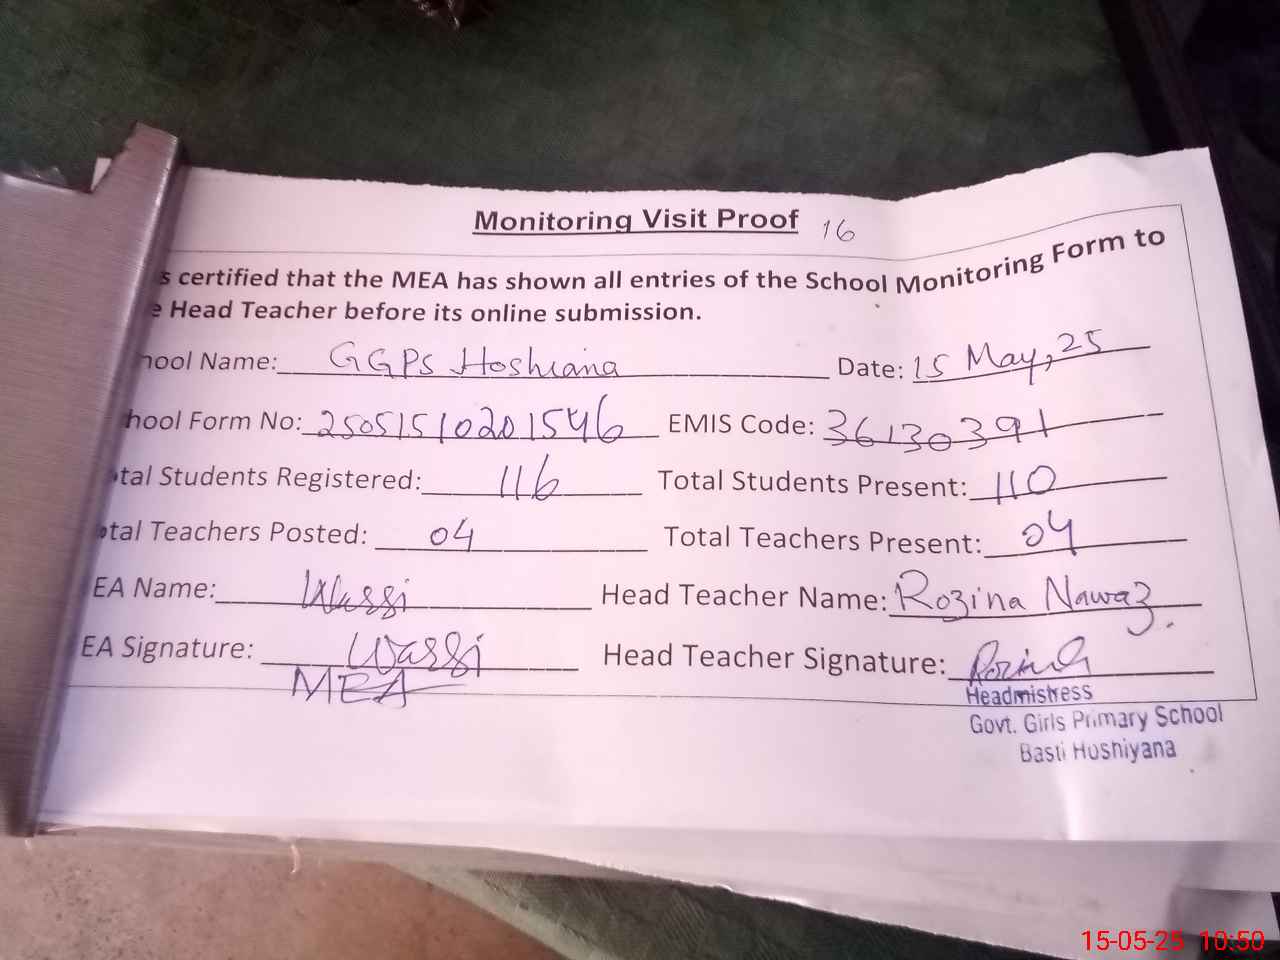 Monitoring Visit Proof 16
s certified that the MEA has shown all entries of the School Monitoring Form to
e Head Teacher before its online submission.
hool Name: GGPS Hoshiana Date: 15 May, 25
hool Form No: 25051510201546 EMIS Code: 36130391
otal Students Registered: 116 Total Students Present: 110
otal Teachers Posted: 04 Total Teachers Present: 04
EA Name: Wassi Head Teacher Name: Rozina Nawaz.
EA Signature: Wassi Head Teacher Signature: Rozina
MEA
Headmistress
Govt. Girls Primary School
Basti Hoshiyana
15-05-25 10:50